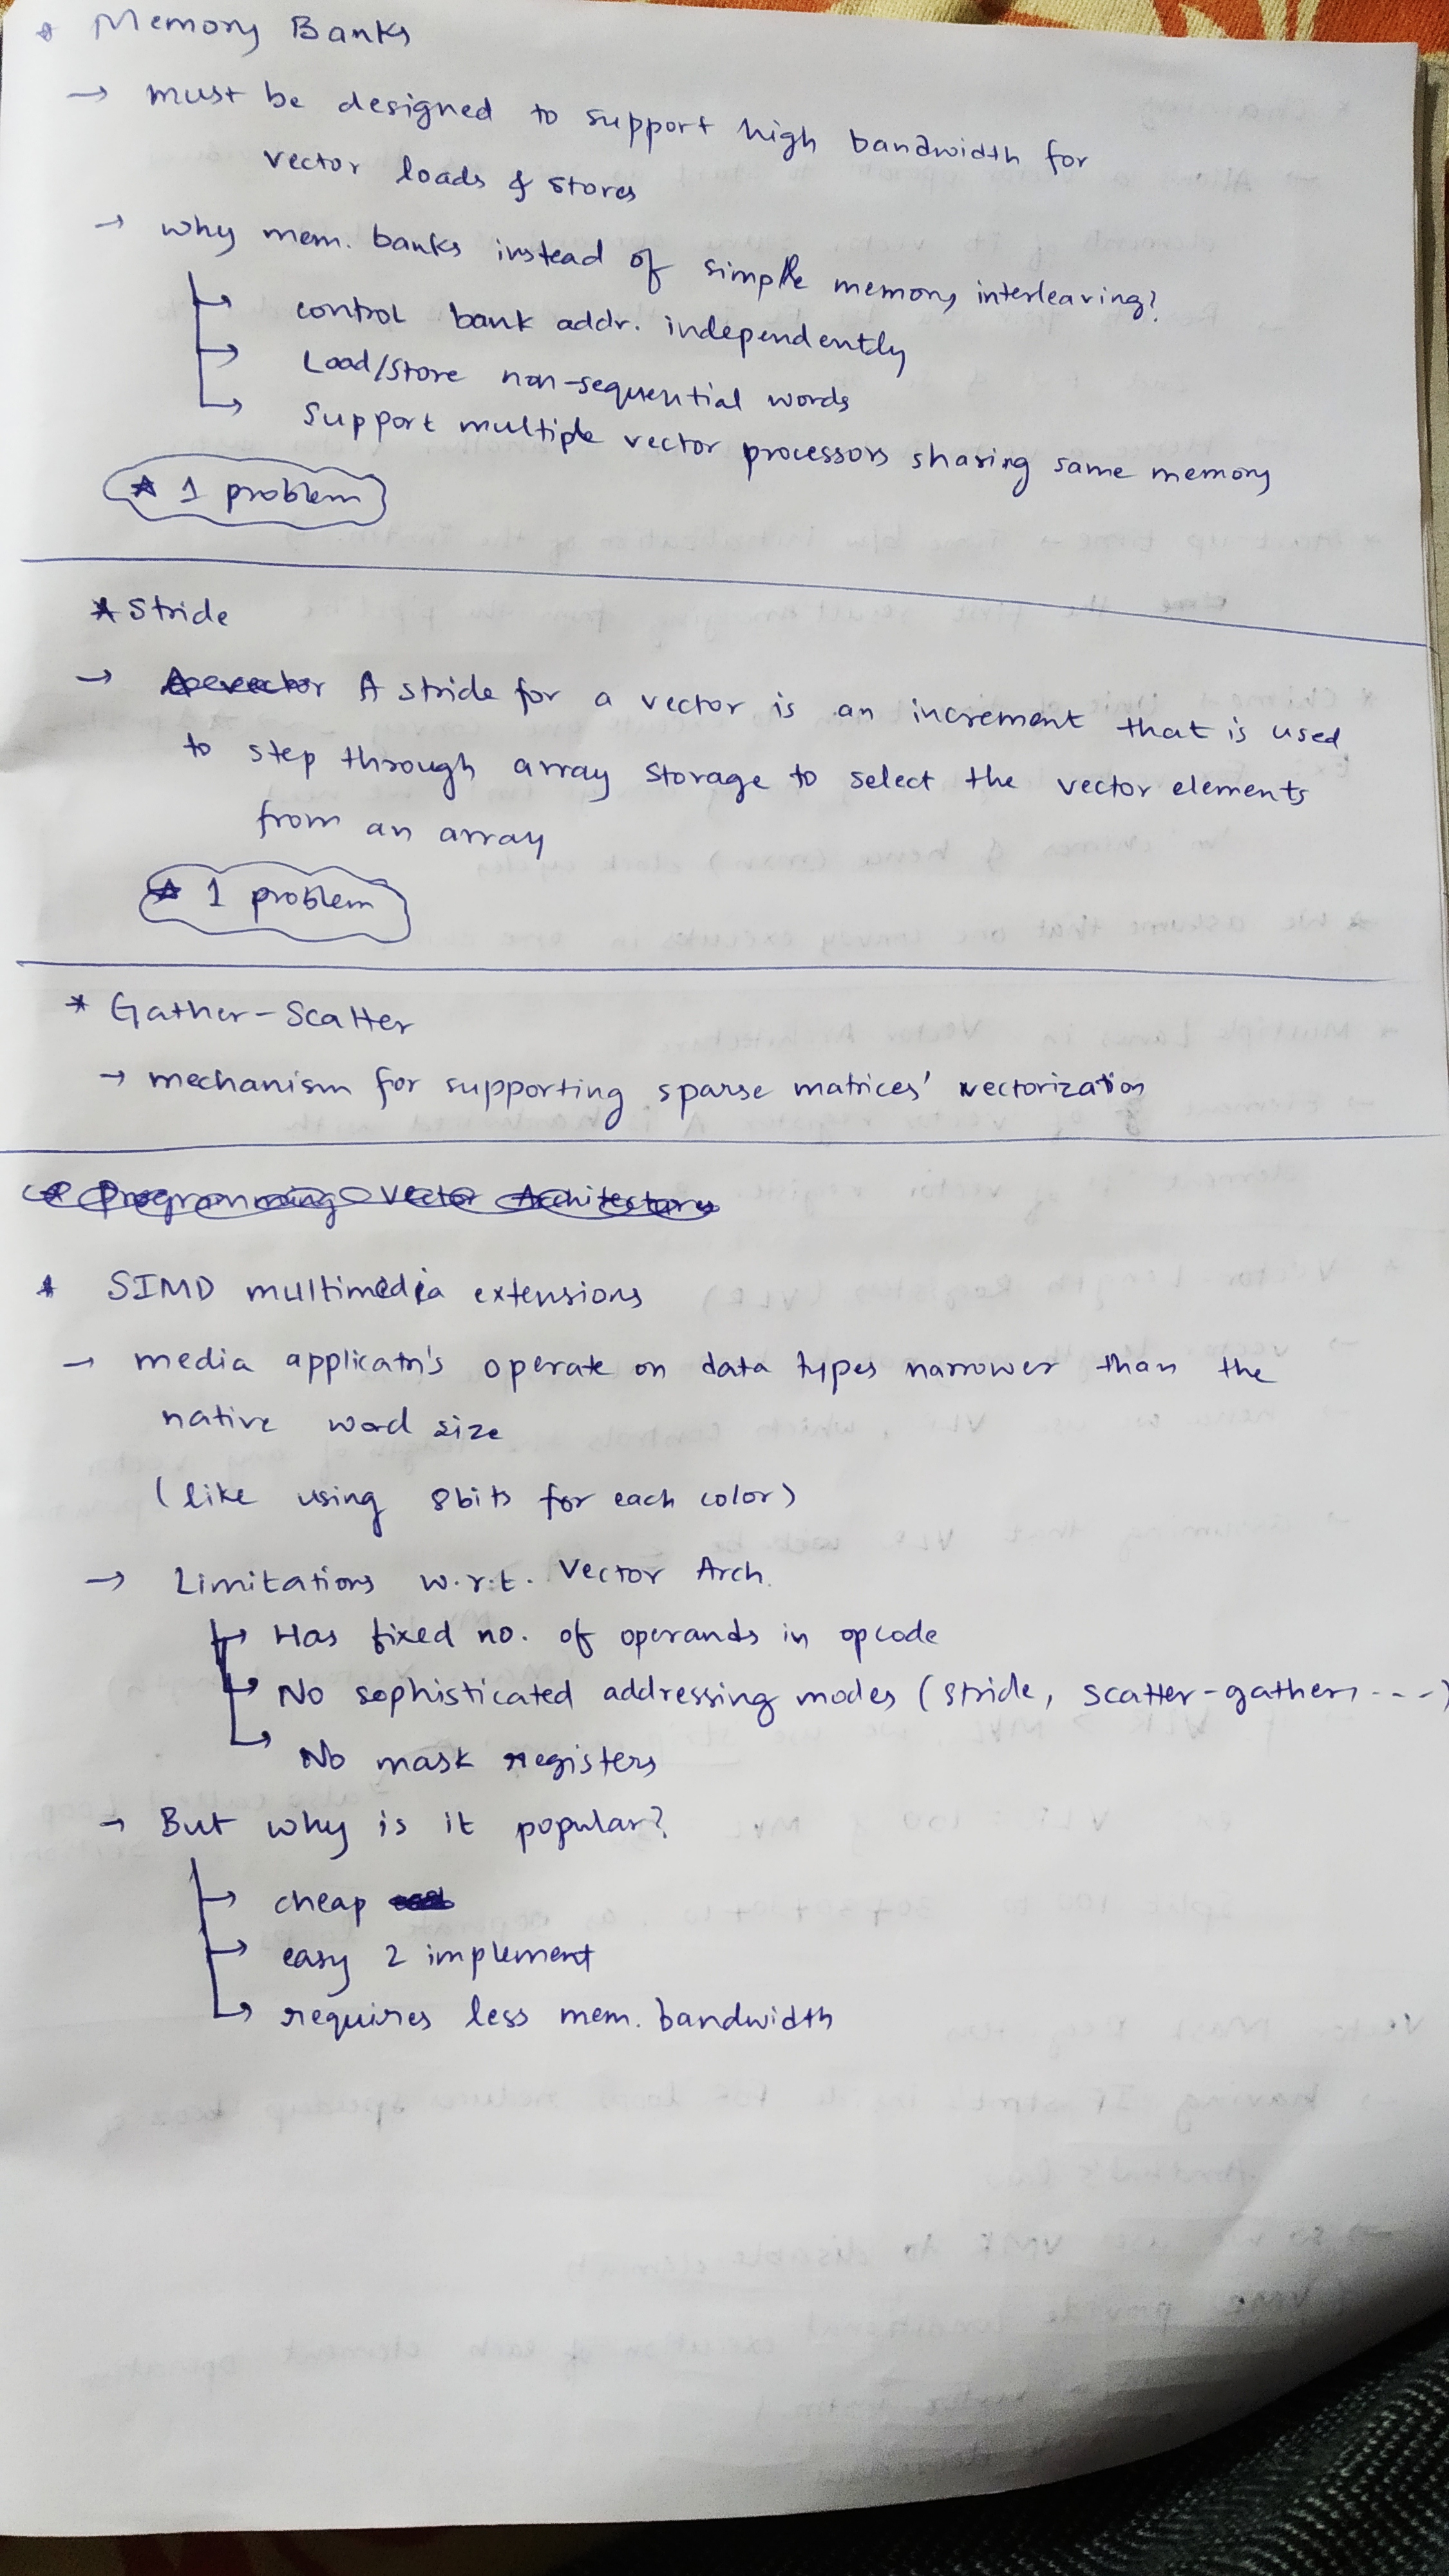 * Memory Banks
→ must be designed to support high bandwidth for
vector loads & stores
→ why mem. banks instead of simple memory interleaving?
↳ control bank addr. independently
↳ Load/Store non-sequential words
↳ Support multiple vector processors sharing same memory
* 1 problem
* Stride
→ A stride for a vector is an increment that is used
to step through array storage to select the vector elements
from an array
* 1 problem
* Gather-Scatter
→ mechanism for supporting sparse matrices' vectorization
* Programming Vector Architectures
* SIMD multimedia extensions
→ media applicatn's operate on data types narrower than the
native word size
(like using 8bits for each color)
→ Limitations w.r.t. Vector Arch.
↳ Has fixed no. of operands in opcode
↳ No sophisticated addressing modes (stride, scatter-gather, ---)
↳ No mask registers
→ But why is it popular?
↳ cheap
↳ easy 2 implement
↳ requires less mem. bandwidth